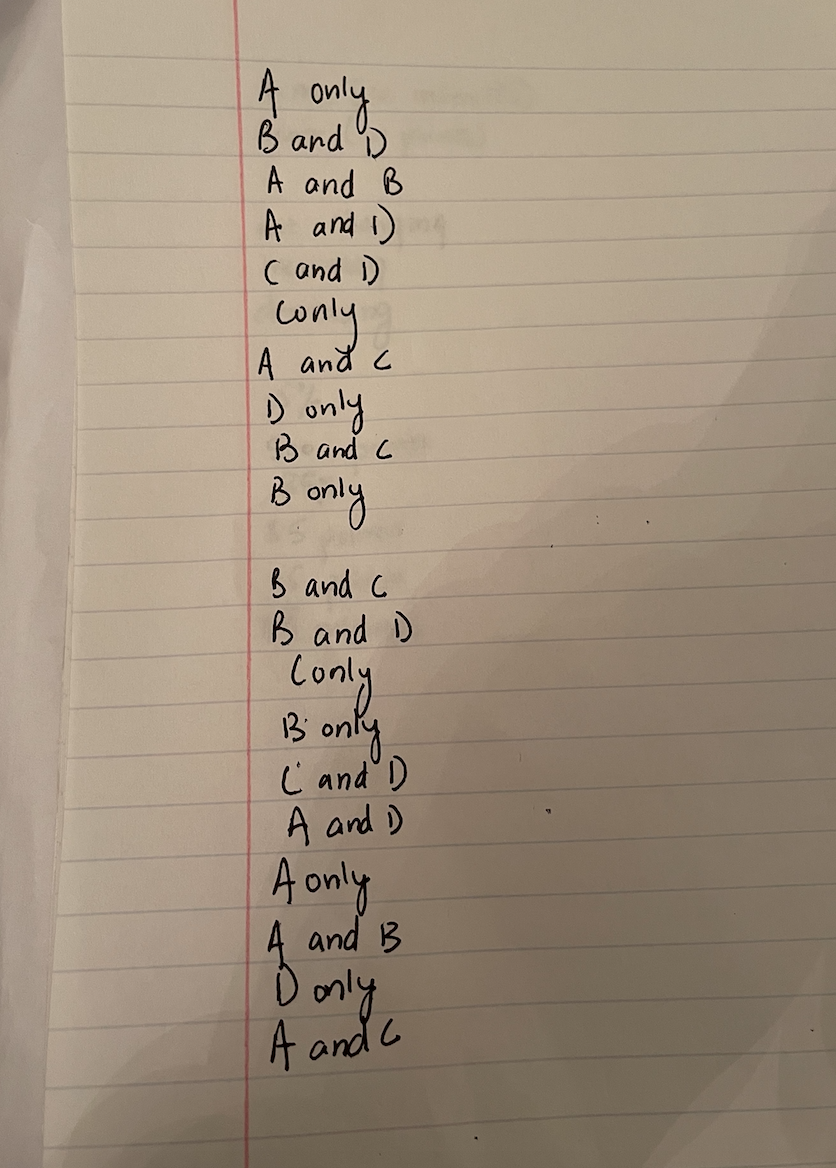 A only
B and D
A and B
A and D
C and D
C only
A and C
D only
B and C
B only
B and C
B and D
C only
B only
C and D
A and D
A only
A and B
D only
A and C